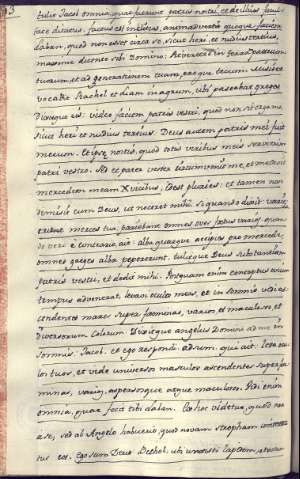 tulit Jacob omnia, quae fuerunt patris nostri, et de illius, facul-
tate ditatus, factus est inclitus, animadvertit quoque faciem
Laban, quod non esset erga se, sicut heri, et nudius tertius,
maxime dicente sibi Domino: Revertere in terram patrum
tuorum, et ad generationem tuam, eroque tecum. Misit et
vocavit Rachel et Liam in agrum, ubi pascebat greges
Dixitque eis: video faciem patris vestri, quod non sit erga me
sicut heri et nudius tertius. Deus autem patris mei fuit
mecum. Et ipsae nostis, quod totis viribus meis servierim
patri vestro. Sed et pater vester circumvenit me, et mutavit
mercedem meam X vicibus, et tamen non
dimisit eum Deus, ut noceret mihi. Si quando dixit: variae
erunt mercedes tuae, pariebant omnes oves foetus varios, quan-
do vero e contrario ait: alba quaeque accipies pro mercede,
omnes greges alba pepererunt, tulitque Deus substantiam
patris vestri, et dedit mihi. Postquam enim conceptus ovium
tempus advenerat, levavi oculos meos, et in somnis vidi as-
cendentes mares super foeminas, varios et maculosos, et
diversorum colorum. Dixitque angelus Domini ad me in
somnis: Jacob. et ego respondi adsum. qui ait: Leva ocu-
los tuos, et vide universos masculos ascendentes super foe-
minas, varios, aspersosque atque maculosos. Vidi enim
omnia, quae fecit tibi Laban.
sed ab Angelo habuerit, quod novam stropham
tus est. Ego sum Deus Bethel, ubi unxisti lapidem,